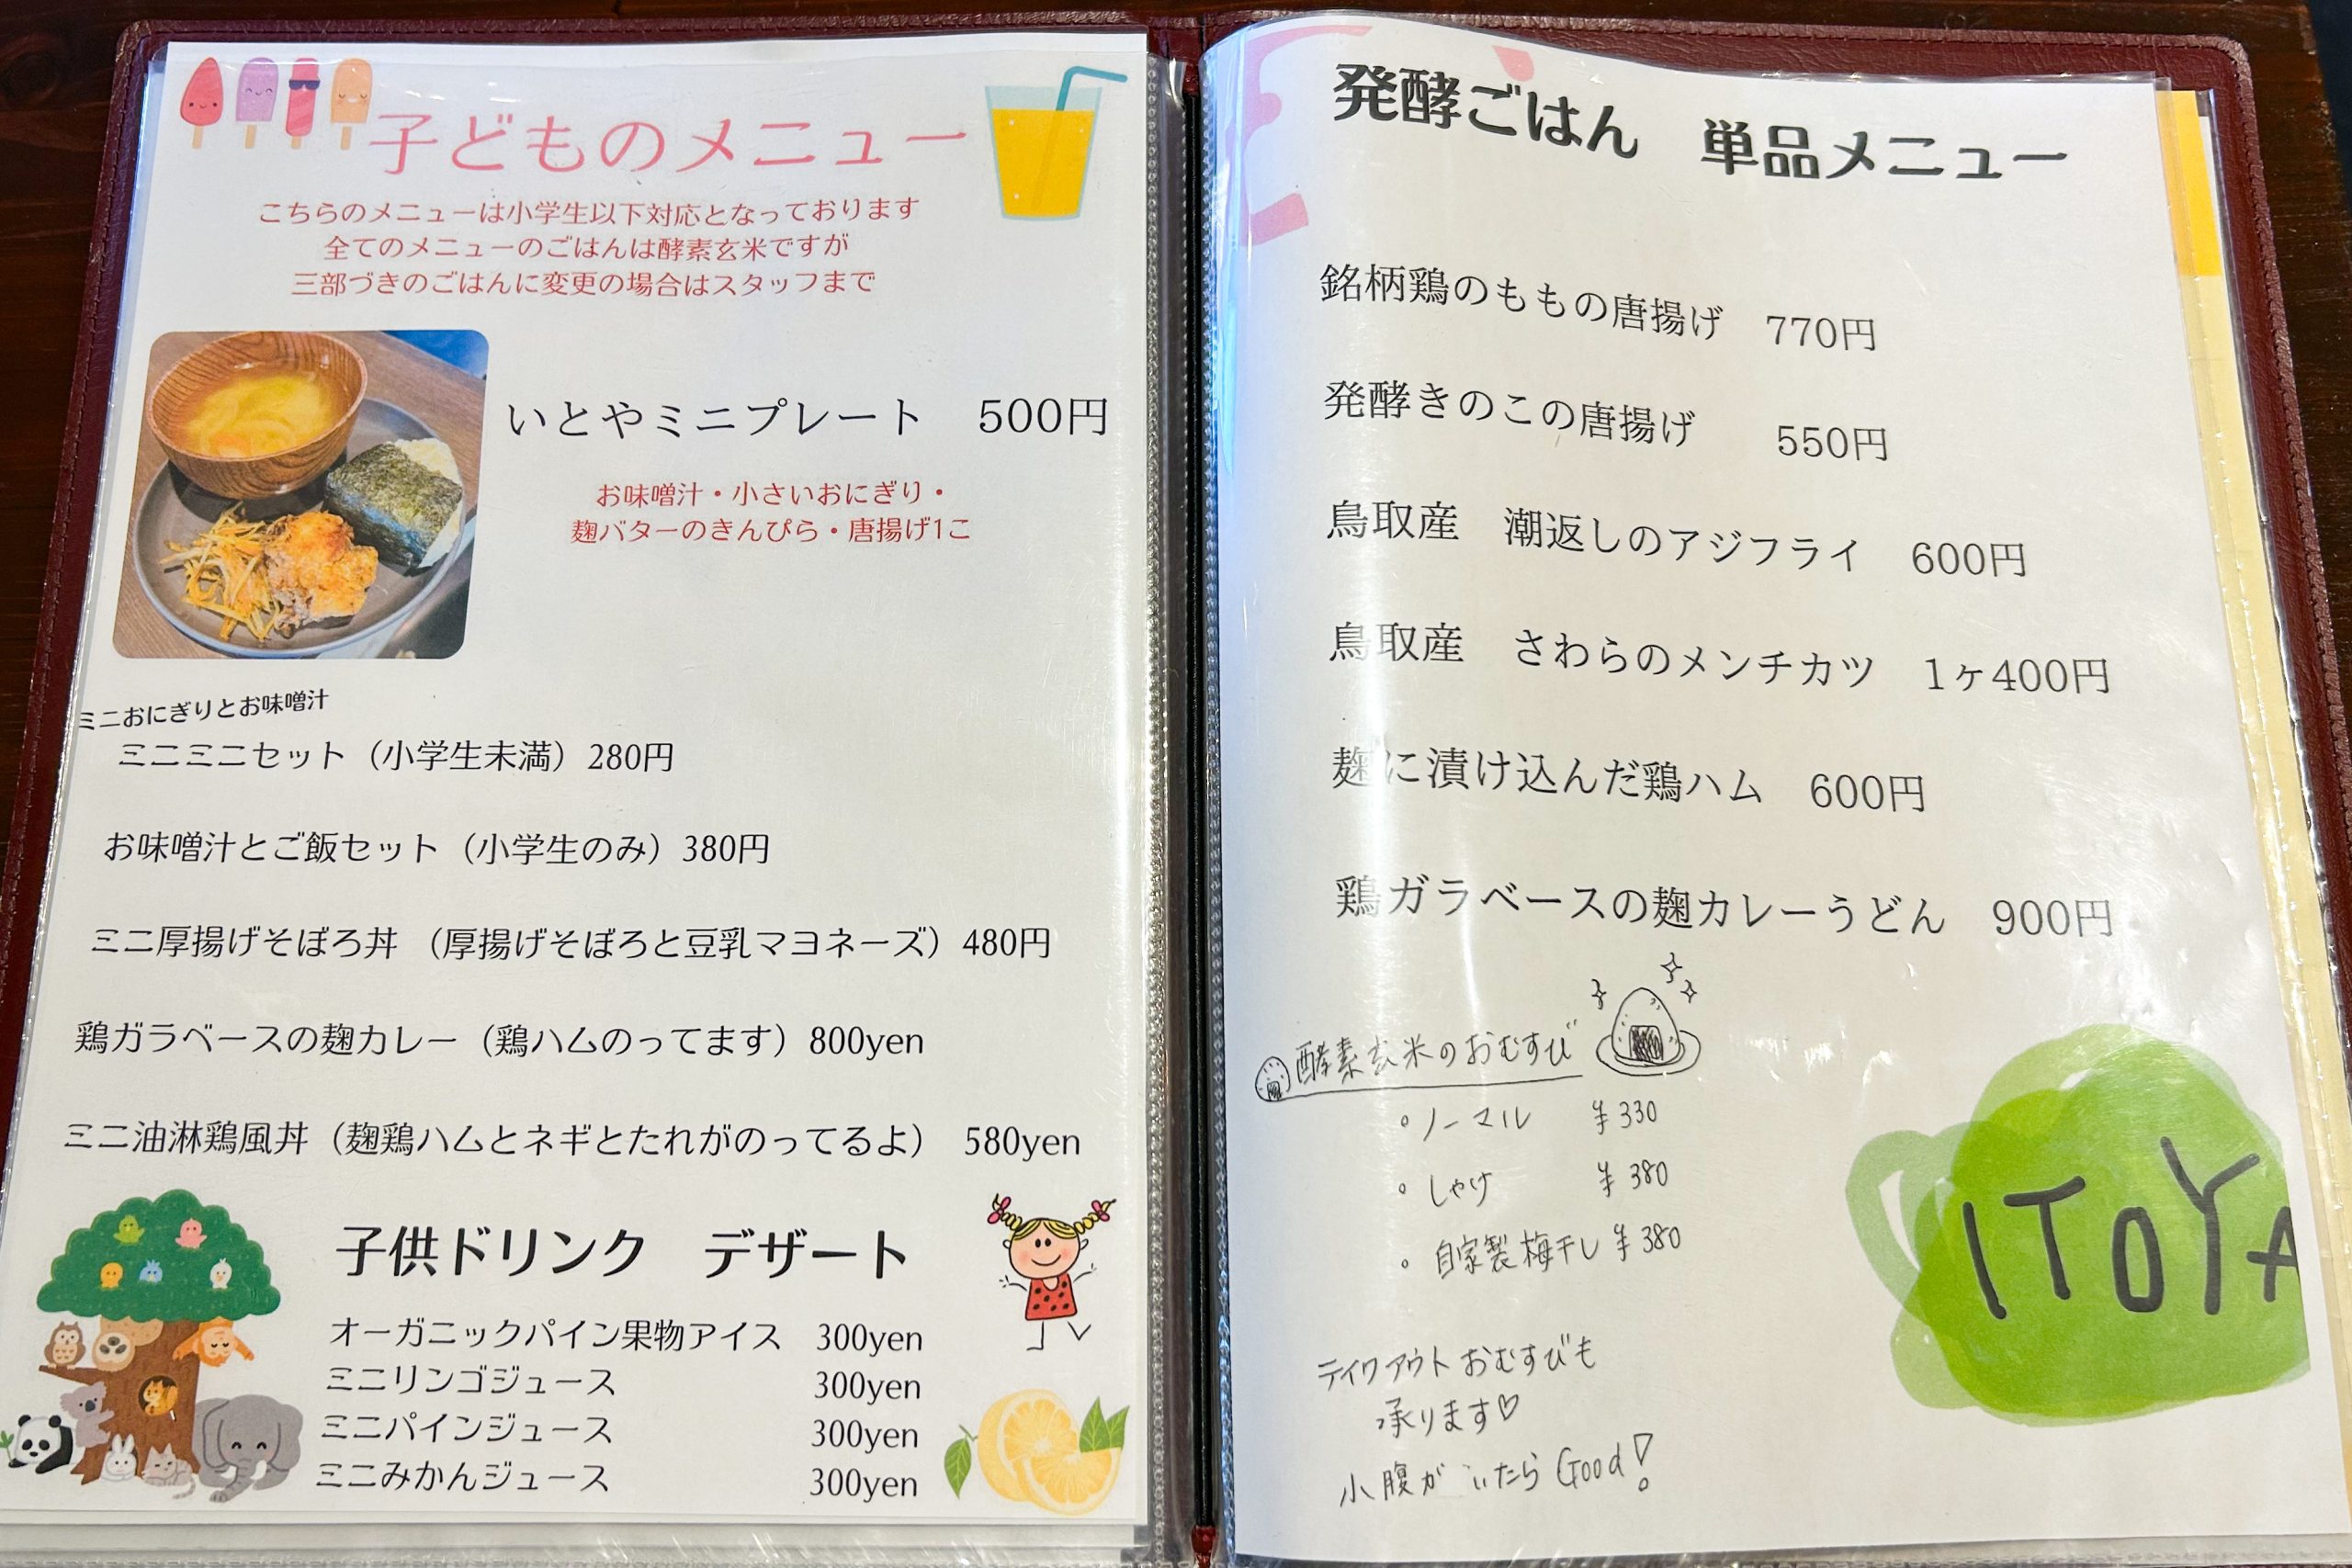 子どものメニュー
こちらのメニューは小学生以下対応となっております
全てのメニューのごはんは酵素玄米ですが
三部づきのごはんに変更の場合はスタッフまで
いとやミニプレート　500円
お味噌汁・小さいおにぎり・
麹バターのきんぴら・唐揚げ1こ
ミニおにぎりとお味噌汁
ミニミニセット（小学生未満）280円
お味噌汁とご飯セット（小学生のみ）380円
ミニ厚揚げそぼろ丼　（厚揚げそぼろと豆乳マヨネーズ）480円
鶏ガラベースの麹カレー（鶏ハムのってます）800yen
ミニ油淋鶏風丼（麹鶏ハムとネギとたれがのってるよ）　580yen
子供ドリンク　デザート
オーガニックパイン果物アイス　300yen
ミニリンゴジュース　300yen
ミニパインジュース　300yen
ミニみかんジュース　300yen
発酵ごはん　単品メニュー
銘柄鶏のももの唐揚げ　770円
発酵きのこの唐揚げ　550円
鳥取産　潮返しのアジフライ　600円
鳥取産　さわらのメンチカツ　1ヶ400円
麹に漬け込んだ鶏ハム　600円
鶏ガラベースの麹カレーうどん　900円
酵素玄米のおむすび
・ノーマル　¥330
・しゃけ　¥380
・自家製梅干し ¥380
テイクアウトおむすびも
承ります♡
小腹が いたら Good!
ITOYA